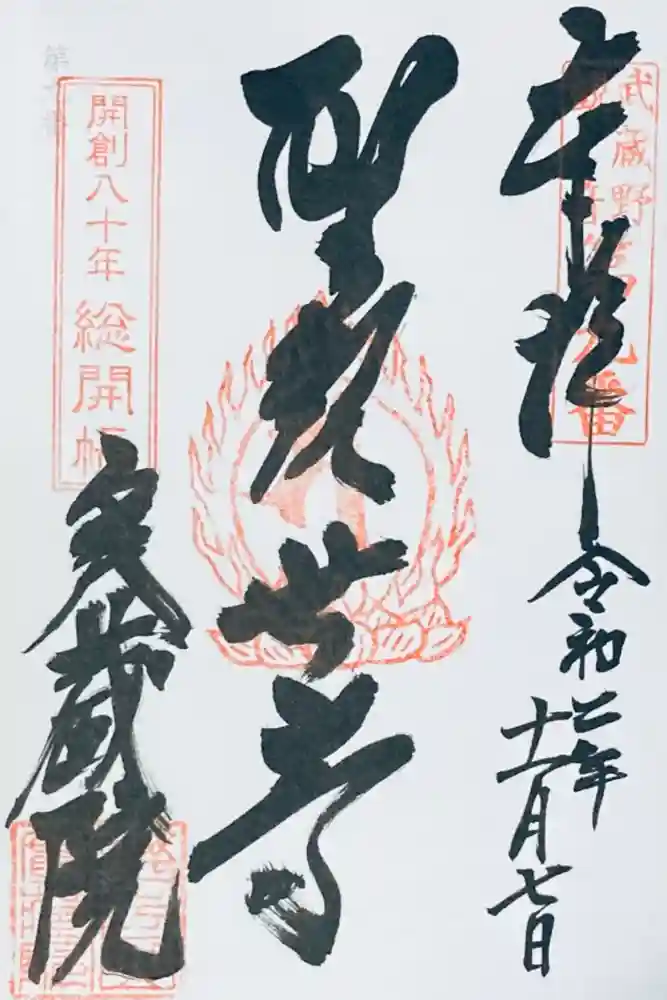 武蔵野
観音
第九番
奉拝
令和二年
十一月七日
聖観世音
開創八十年 総開帳
実蔵院